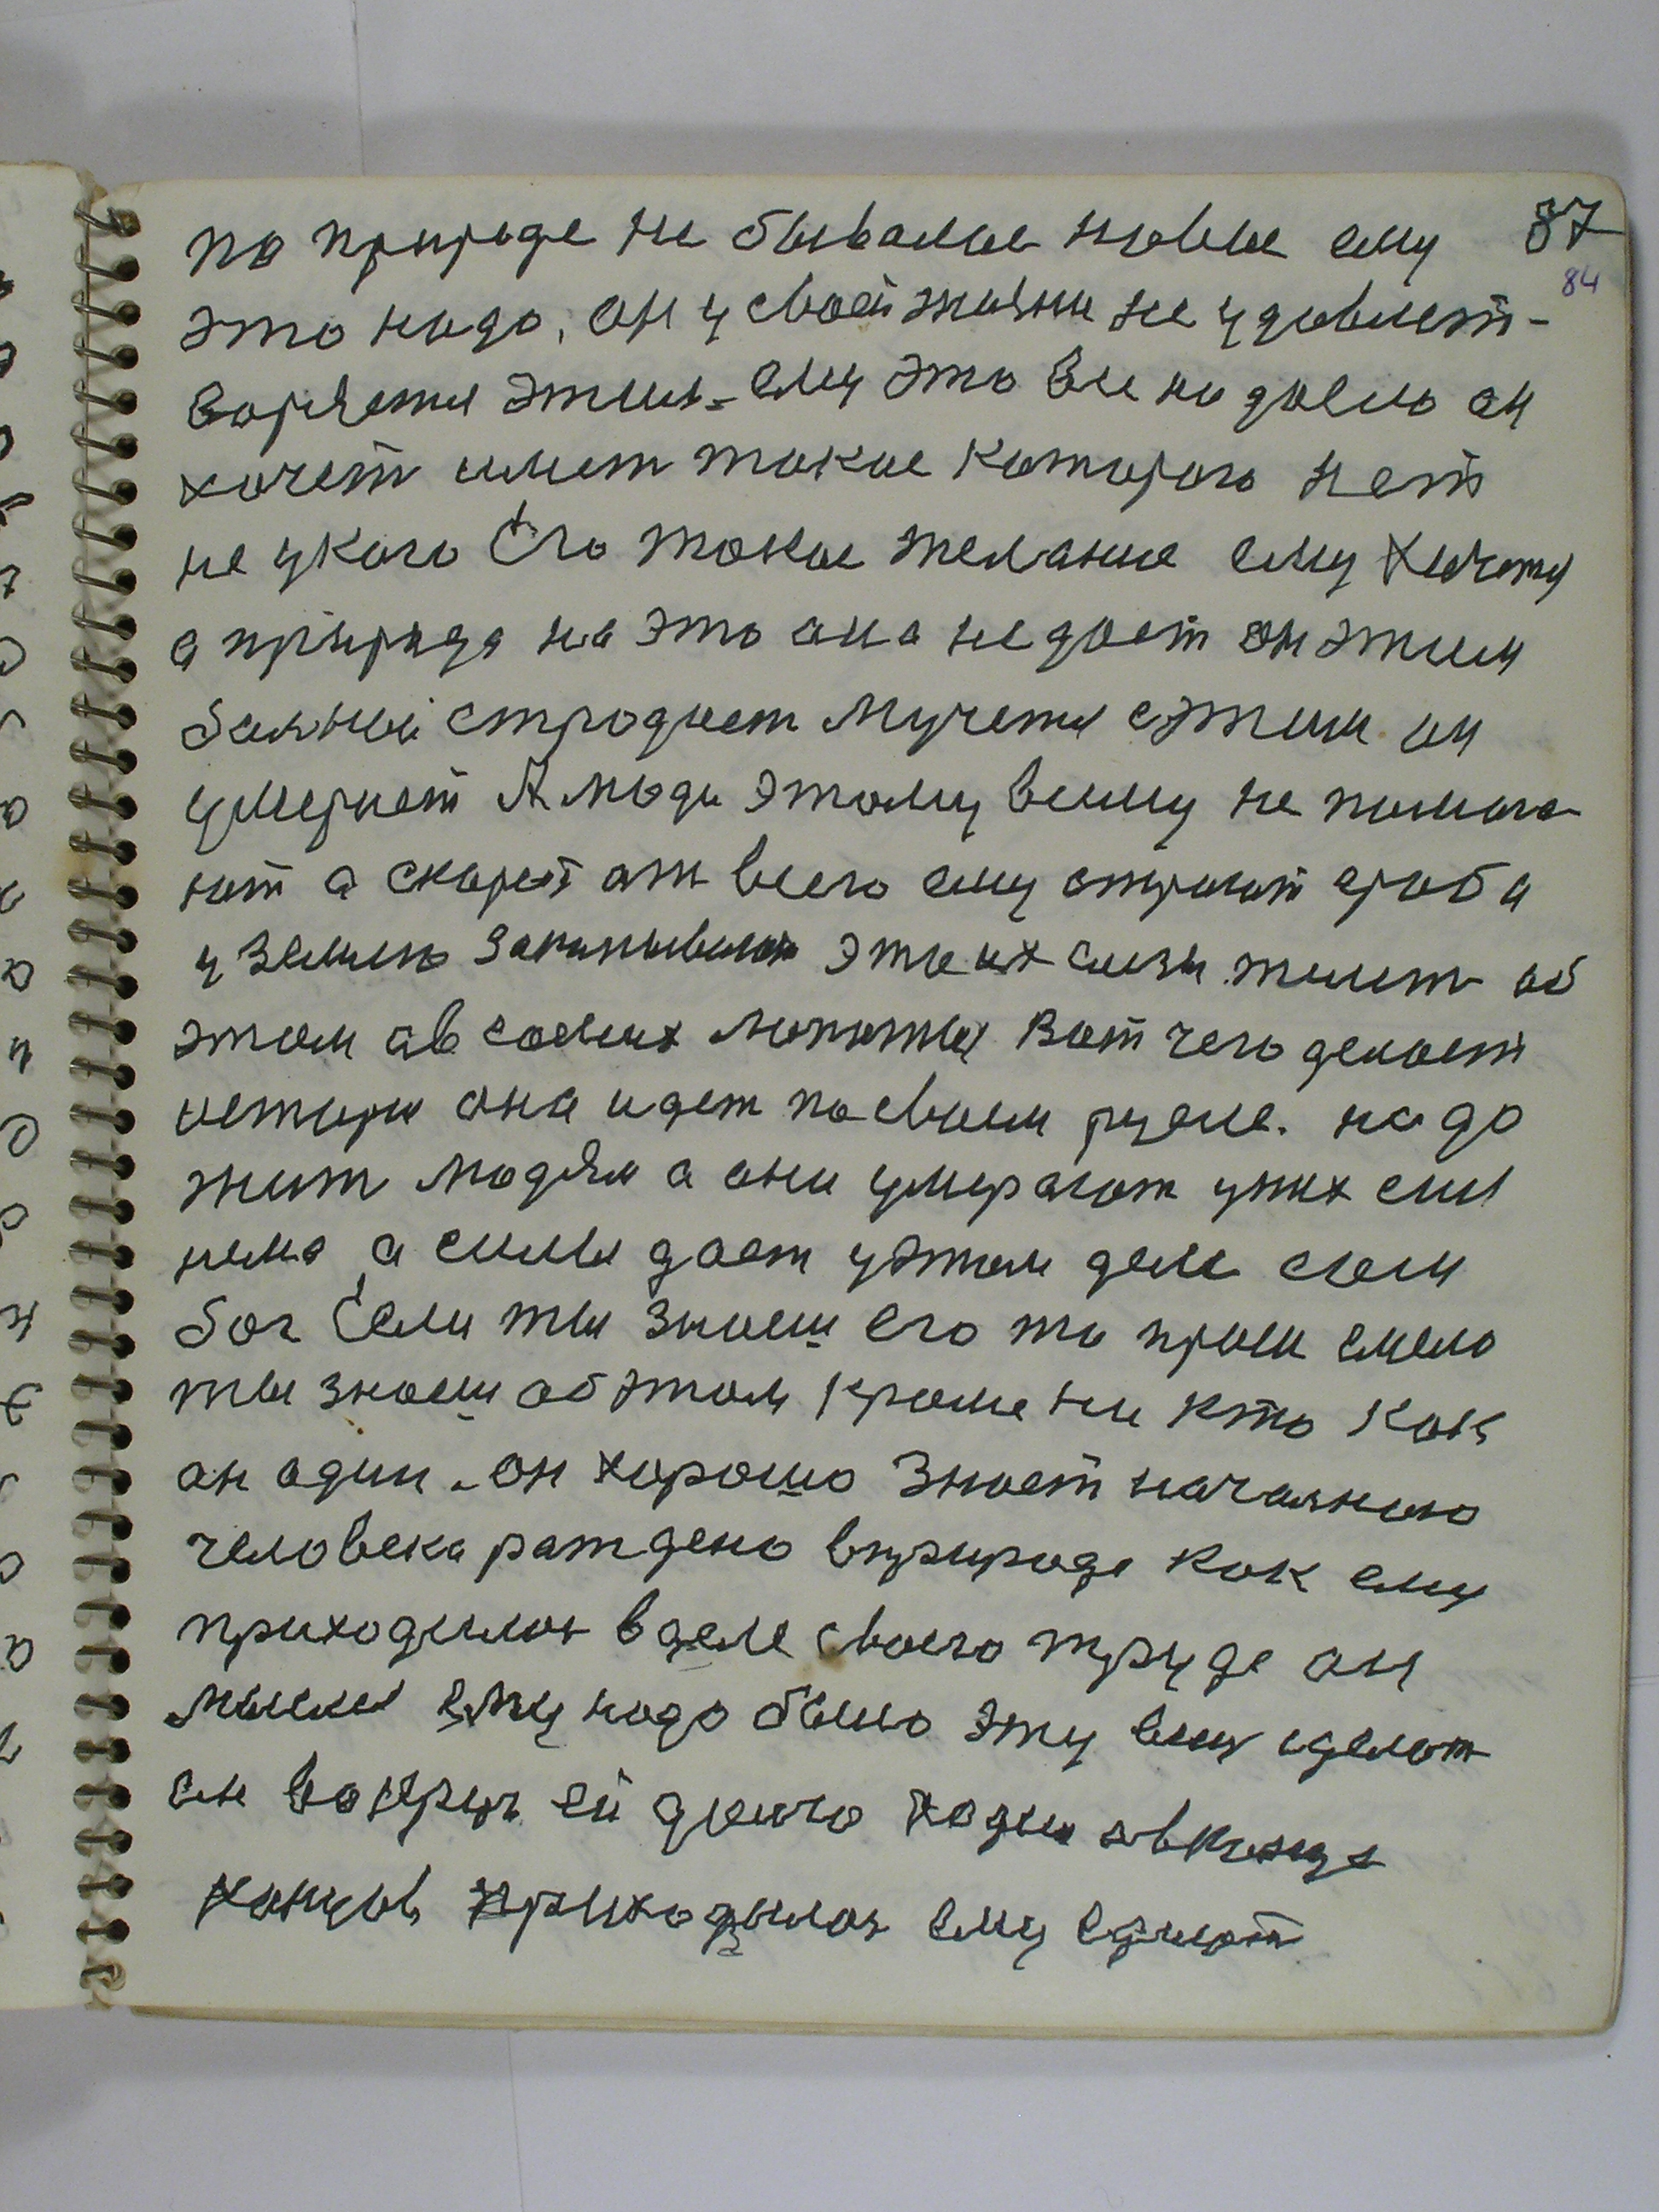 по природе не бывалое новое ему 87
84
это надо, он у своей жизни не удовлет-
воряется этим. ему это все надоело он
хочет имет такое которого нет
не укого Его такое желание ему хочется
а природа на это она не дает он этим
болной страдает мучется сэтим он
умерает А люди этому всему не помога
ют а скорей от всего ему строют гроба
у землю закапывают это их сизн об
этом ав соених Вот чего делает
история она идет посвоем русле. надо
жит людям а они умерают уних сил
нема а силы дает уэтом деле сам
бог Если ты знаеш его то проси смело
ты знаеш об этом кроме ни кто как
он один. он хорошо знает началного
человека раждено вприроде как ему
приходилос вделе своего труде он
мылся ему надо было эту вещ сделат
он вокруг ей долго ходил авконце
концов приходилос ему